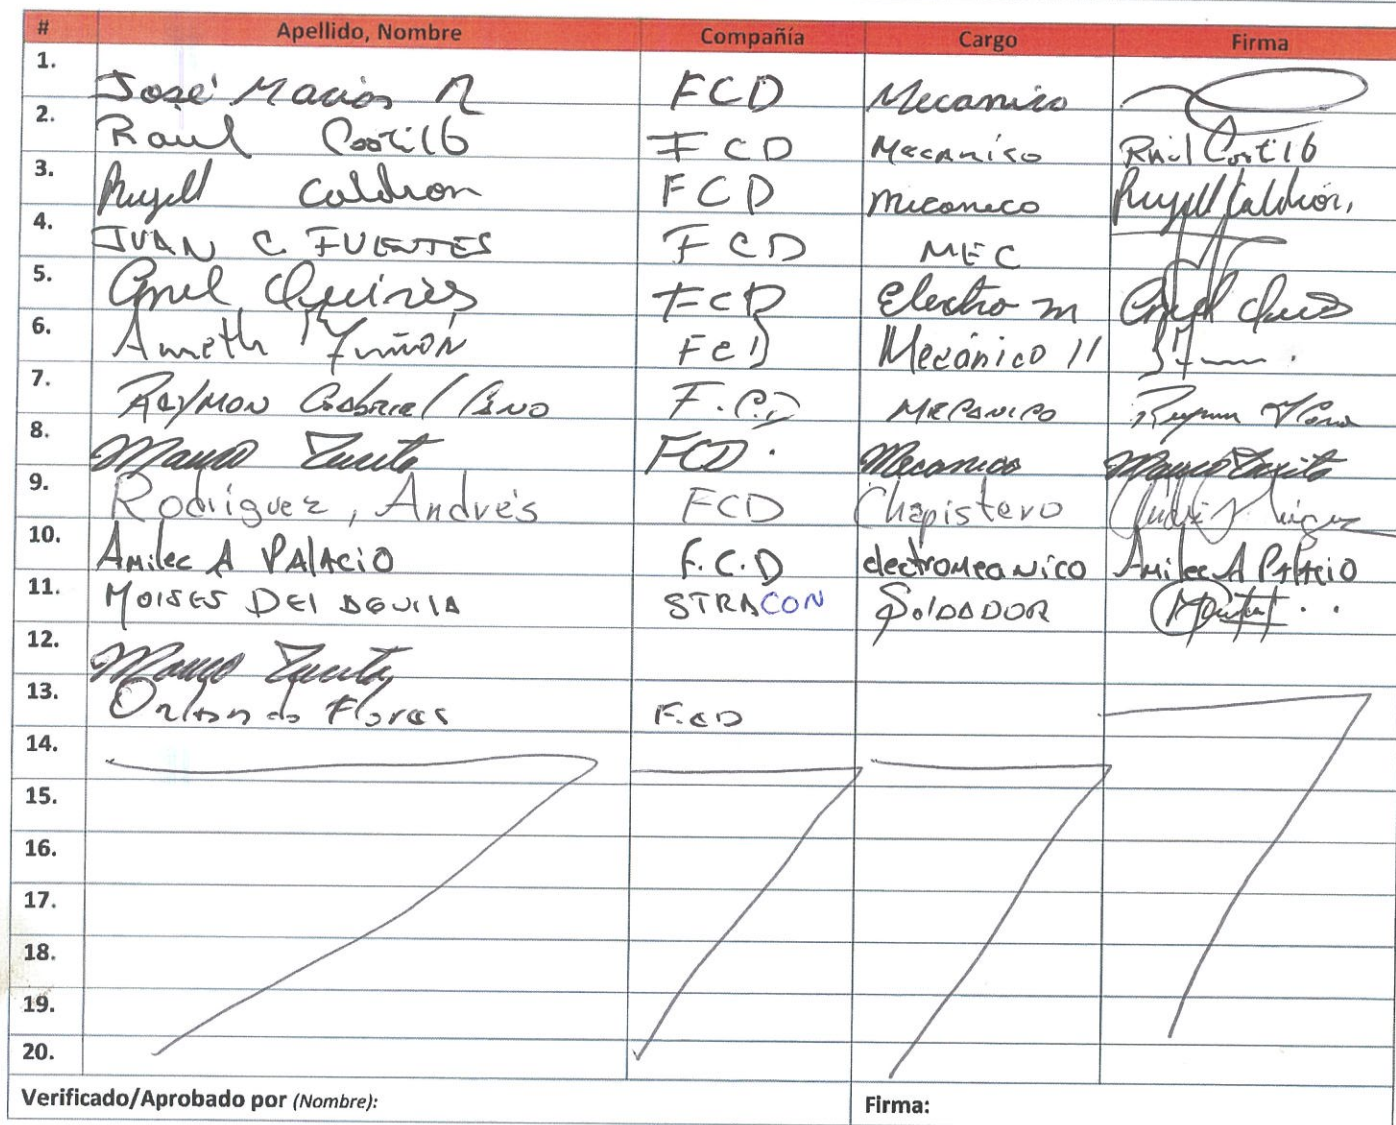 # Apellido, Nombre Compañía Cargo Firma
1. José Macias R FCD Mecanico
2. Raul Costilb FCD Mecanico Raul Costilb
3. Rugell Caldron FCD mecanico Rugell Caldron.
4. JUAN C FUENTES FCD MEC
5. Quiros FCD Electro m
6. Ameth FCD Mecánico II
7. Raymon Gabriel F.C.D MECANICO
8. FCD. Mecanico
9. Rodríguez, Andrés FCD Chapistero
10. Amilec A PALACIO F.C.D electromecanico Amilec A PALACIO
11. MOISES DEl AGUILA STRACON SOlDADOR
12.
13. Orlando Flores F.C.D
14.
15.
16.
17.
18.
19.
20.
Verificado/Aprobado por (Nombre): Firma: